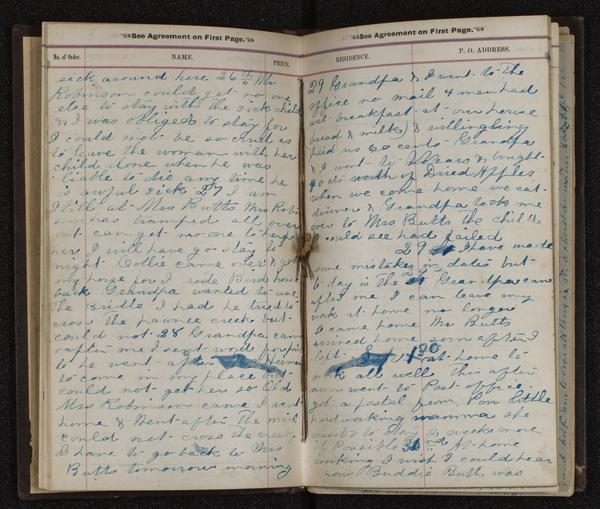 See Agreement on First Page.
No. of Order. NAME. PRICE.
sick around here 26th Mr
Robinson could get no one
else to stay with the sick child
& I was obliged to stay for
I could not be so cruel as
to leave the woman with her
child alone when he was
liable to die any time he
is awful sick 27 I am
still at Mrs Butts Mr Robin
son has tramped all over
but can get no one to
here I will have go stay to
night Collie came over & got
my horse for I rode Birds horse
back Grandpa wanted to use
The Bridle I had he tried to
cross the pawnee creek but
could not 28 Grandpa came
after me I sent word for
to he went after
to come in my place but
could not get her so Old
Mrs Robinson came I went
home & Went after The mail
could not cross the creek
I have to go back to Mrs
Butts tomorrow morning
See Agreement on First Page.
RESIDENCE. P. O. ADDRESS.
29 Grandpa & I went to The
office no mail 4 men had
at breakfast at our house
bread & milk) & willingly
paid us 60 cents Grandpa
& I went to & bought
worth of Dried Apples
when we come home we eat
dinner & Grandpa took me
over to Mrs Butts the child
could see had failed
29 I have made
some mistakes in dates but
to day is the Grandpa came
after me I can leave my
work at home no longer
I came home Mr Butts
arrived home soon after I
left at home to
all well this after
noon went to Post office
got a postal from Poor little
hardworking mamma she
wants to stay weeks more
if Possible At home
working I wish I could hear
how Buddie Butts was